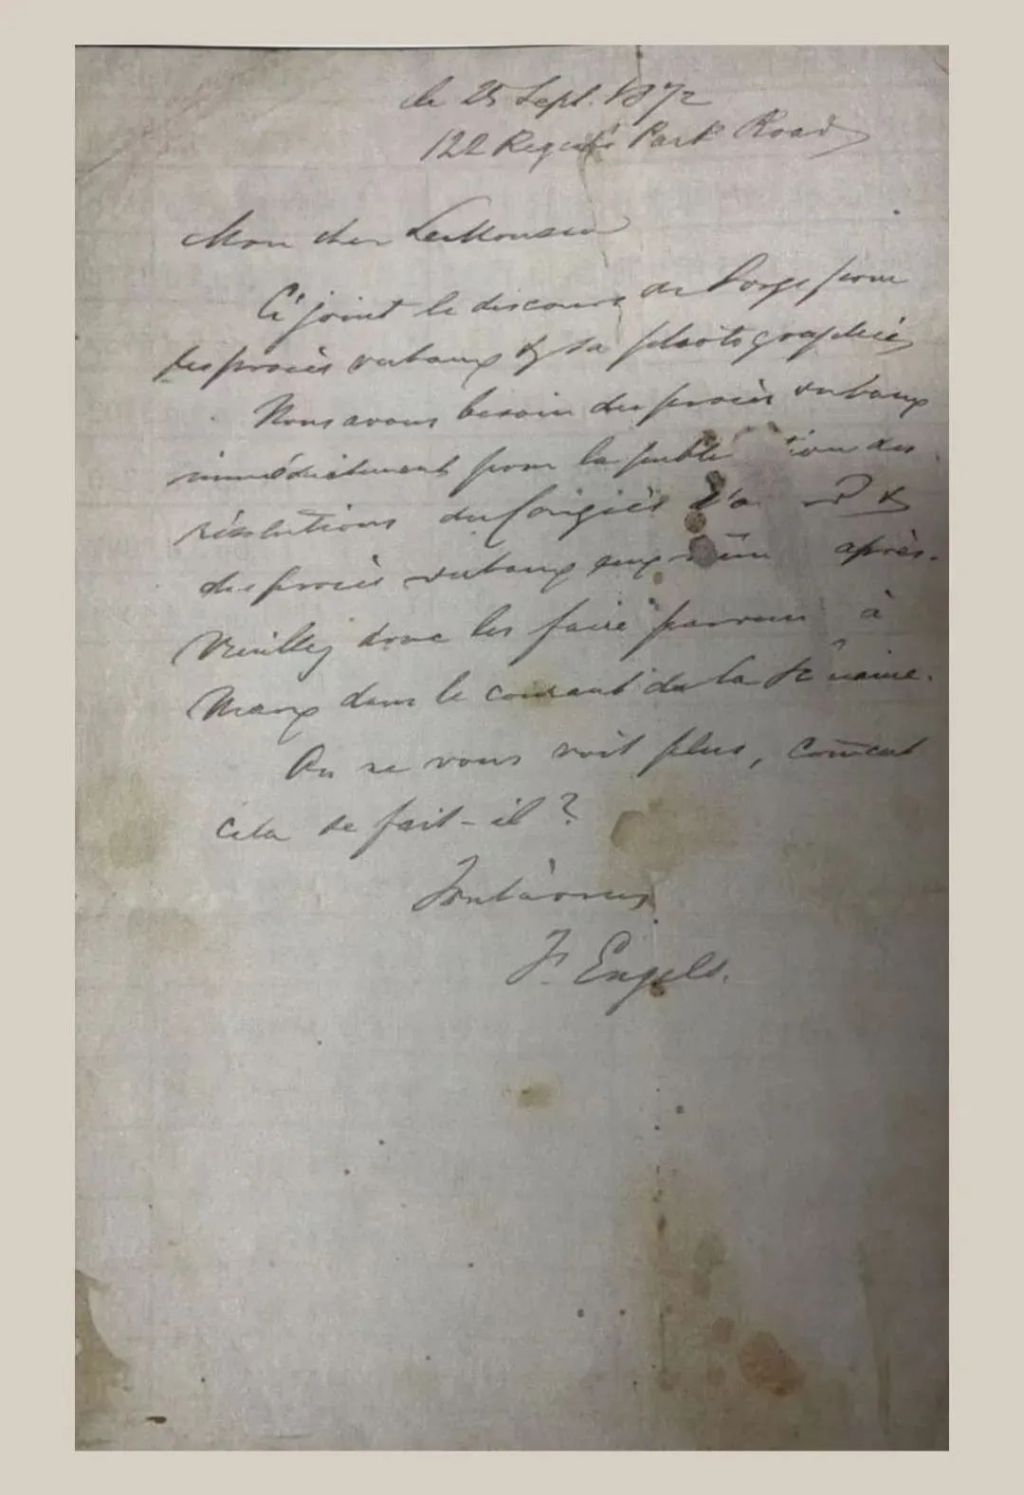 le 25 Sept. 1872
122 Regent's Park Road
Mon cher LeMoussu
Ci joint le discours de Sorge pour
les procès verbaux & sa photographie,
Nous avons besoin des procès verbaux
immédiatement pour la tion des
résolutions du Congrès &
des procès verbaux après.
Veuillez donc les faire parvenir à
Marx dans le courant de la
On ne vous voit plus, comment
cela se fait-il?
F. Engels.